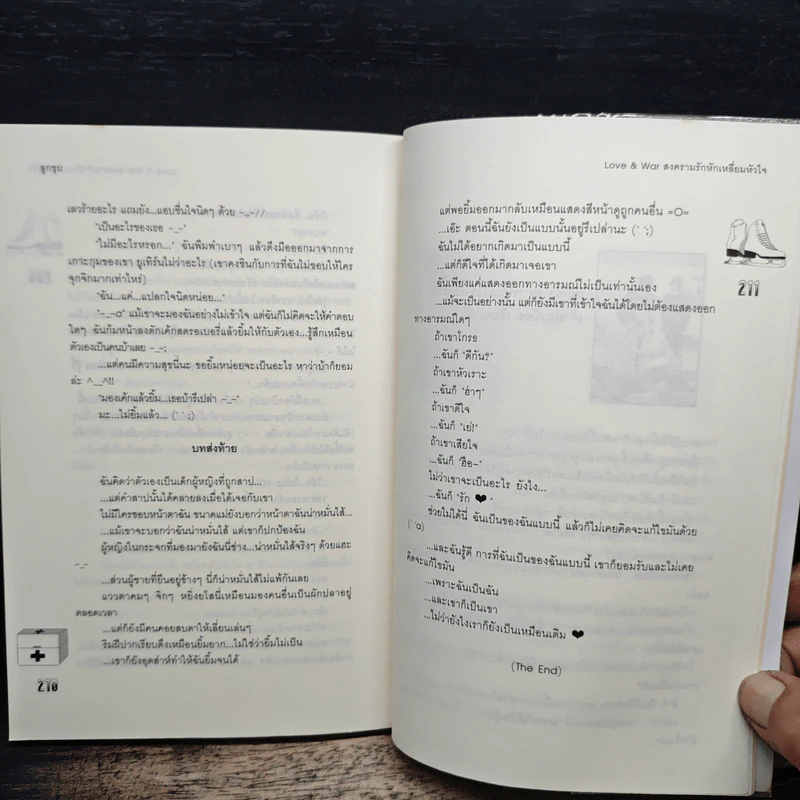 ลูกชุบ
เลวร้ายอะไร แถมยัง...แอบชื่นใจนิดๆ ด้วย -,,-//
"เป็นอะไรของเธอ -_-"
"ไม่มีอะไรหรอก..." ฉันพึมพำเบาๆ แล้วดึงมือออกมาจากการ
เกาะกุมของเขา ยูเทิร์นไม่ว่าอะไร (เขาคงชินกับการที่ฉันไม่ชอบให้ใคร
จุกจิกมากเท่าไหร่)
"ฉัน...แค่...แปลกใจนิดหน่อย..."
"-_-a" แม้เขาจะมองฉันอย่างไม่เข้าใจ แต่ฉันก็ไม่คิดจะให้คำตอบ
ใดๆ ฉันก้มหน้าลงตักเค้กสตรอเบอรี่แล้วยิ้มให้กับตัวเอง...รู้สึกเหมือน
ตัวเองเป็นคนบ้าเลย -_-;
...แต่คนมีความสุขนี่นะ ขอยิ้มหน่อยจะเป็นอะไร หาว่าบ้าก็ยอม
ล่ะ ^__^!!
"มองเค้กแล้วยิ้ม...เธอบ้ารึเปล่า -_-"
มะ...ไม่ยิ้มแล้ว... (' ' ;)
บทส่งท้าย
ฉันคิดว่าตัวเองเป็นเด็กผู้หญิงที่ถูกสาป...
...แต่คำสาปนั้นได้คลายลงเมื่อได้เจอกับเขา
ไม่มีใครชอบหน้าตาฉัน ขนาดแม่ยังบอกว่าหน้าตาฉันน่าหมั่นไส้...
...แม้เขาจะบอกว่าฉันน่าหมั่นไส้ แต่เขาก็ปกป้องฉัน
ผู้หญิงในกระจกที่มองมายังฉันนี่ช่าง...น่าหมั่นไส้จริงๆ ด้วยแฮะ
-_-
...ส่วนผู้ชายที่ยืนอยู่ข้างๆ นี่ก็น่าหมั่นไส้ไม่แพ้กันเลย
แววตาคมๆ จิกๆ หยิ่งยโสนี่เหมือนมองคนอื่นเป็นผักปลาอยู่
ตลอดเวลา
...แต่ก็ยังมีคนคอยสบตาให้เลี่ยนเล่นๆ
ริมฝีปากเรียบตึงเหมือนยิ้มยาก...ไม่ใช่ว่ายิ้มไม่เป็น
...เขาก็ยังอุตส่าห์ทำให้ฉันยิ้มจนได้
210
Love & War สงครามรักหักเหลี่ยมหัวใจ
แต่พอยิ้มออกมากลับเหมือนแสดงสีหน้าดูถูกคนอื่น =O=
...เอ๊ะ ตอนนี้ฉันยังเป็นแบบนั้นอยู่รึเปล่านะ (' ';)
ฉันไม่ได้อยากเกิดมาเป็นแบบนี้
...แต่ก็ดีใจที่ได้เกิดมาเจอเขา
ฉันเพียงแค่แสดงออกทางอารมณ์ไม่เป็นเท่านั้นเอง
...แม้จะเป็นอย่างนั้น แต่ก็ยังมีเขาที่เข้าใจฉันได้โดยไม่ต้องแสดงออก
ทางอารมณ์ใดๆ
ถ้าเขาโกรธ
...ฉันก็ "ดีกัน?"
ถ้าเขาหัวเราะ
...ฉันก็ "ฮ่าๆ"
ถ้าเขาดีใจ
...ฉันก็ "เย่!"
ถ้าเขาเสียใจ
...ฉันก็ "ฮือ~"
ไม่ว่าเขาจะเป็นอะไร ยังไง...
...ฉันก็ "รัก ❤ "
ช่วยไม่ได้นี่ ฉันเป็นของฉันแบบนี้ แล้วก็ไม่เคยคิดจะแก้ไขมันด้วย
(' 'a)
...และฉันรู้ดี การที่ฉันเป็นของฉันแบบนี้ เขาก็ยอมรับและไม่เคย
คิดจะแก้ไขมัน
...เพราะฉันเป็นฉัน
...และเขาก็เป็นเขา
...ไม่ว่ายังไงเราก็ยังเป็นเหมือนเดิม ❤
(The End)
211